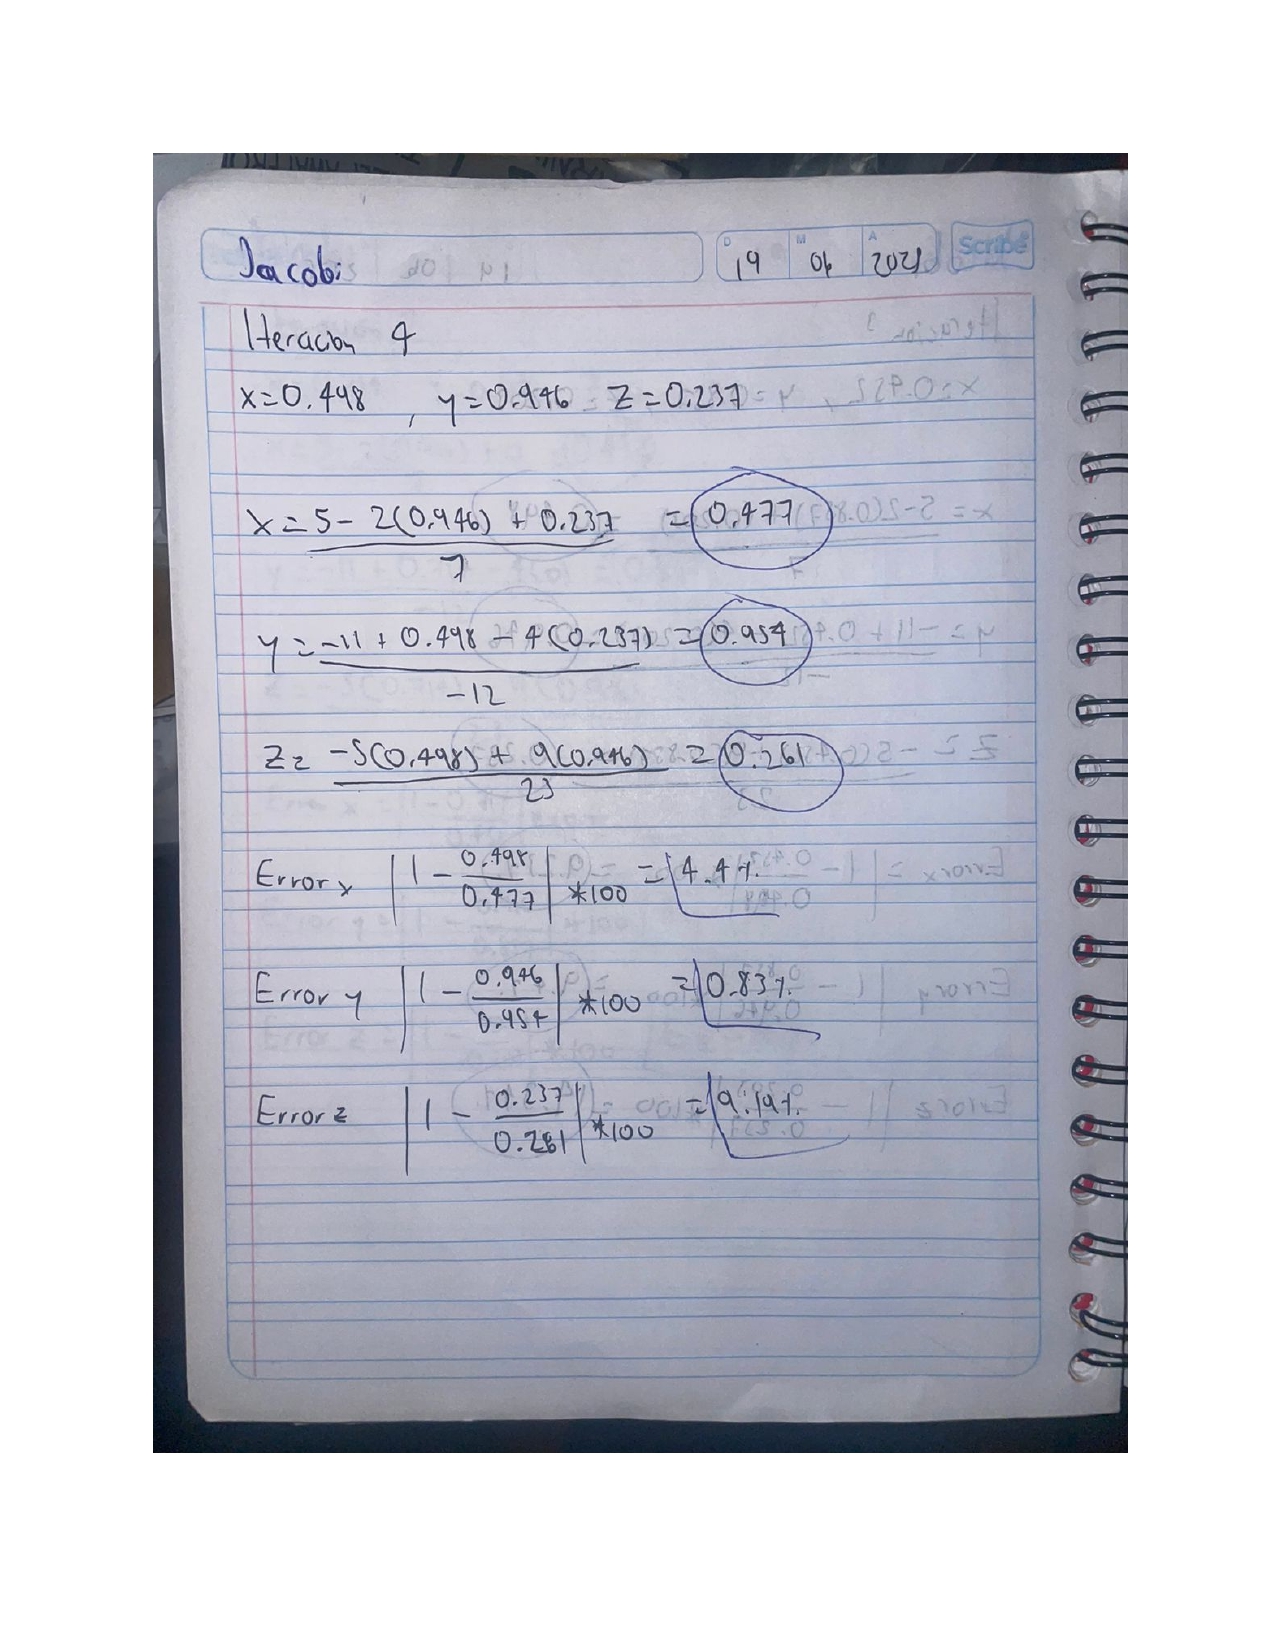 Jacobi
D 19 M 06 A 2021 Scribe
Iteracion 4
x=0.498 , y=0.946 z=0.237
x= 5 - 2(0.946) + 0.237 = 0.477
7
y= -11 + 0.498 - 4(0.237) = 0.954
-12
z= -5(0.498) + 9(0.946) = 0.261
23
Error x |1 - 0.498/0.477| *100 = 4.4%
Error y |1 - 0.946/0.954| *100 = 0.83%
Error z |1 - 0.237/0.261| *100 = 9.19%